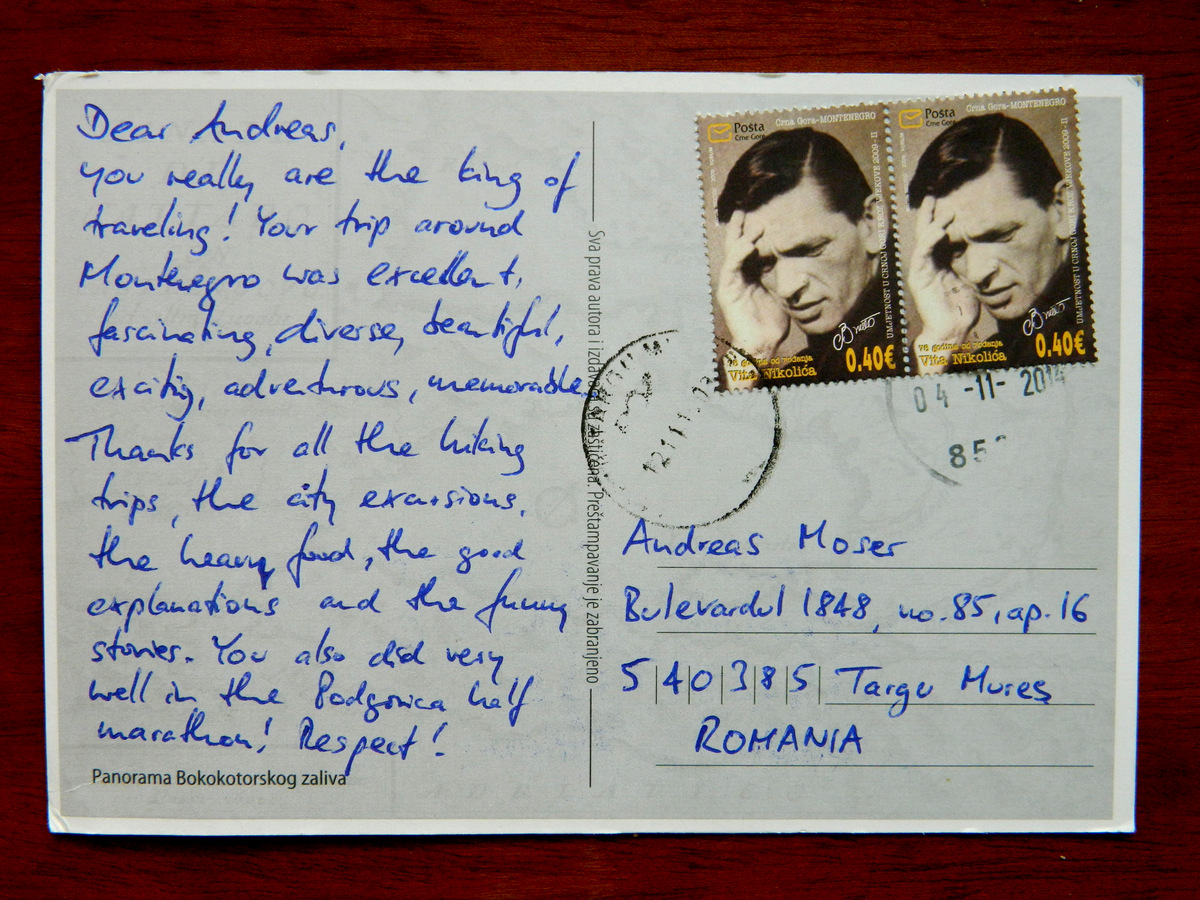 Dear Andreas,
you really are the king of
traveling! Your trip around
Montenegro was excellent,
fascinating, diverse, beautiful,
excitig, adventurous, memorable.
Thanks for all the hiking
trips, the city excursions,
the heavy food, the good
explanations and the funny
stories. You also did very
well in the Podgorica half
marathon! Respect!
Panorama Bokokotorskog zaliva
Sva prava autora i izdavača su zaštićena. Preštampavanje je zabranjeno
Pošta
Crne Gore
Crna Gora-MONTENEGRO
UMJETNOST U CRNOJ GORI
78 godina od rođenja
Vita Nikolića
0.40€
Pošta
Crne Gore
Crna Gora-MONTENEGRO
UMJETNOST U CRNOJ GORI KROZ VJEKOVE 2009-II
78 godina od rođenja
Vita Nikolića
0.40€
04-11-2014
85
Andreas Moser
Bulevardul 1848, no.85, ap.16
540385 Targu Mureş
ROMANIA